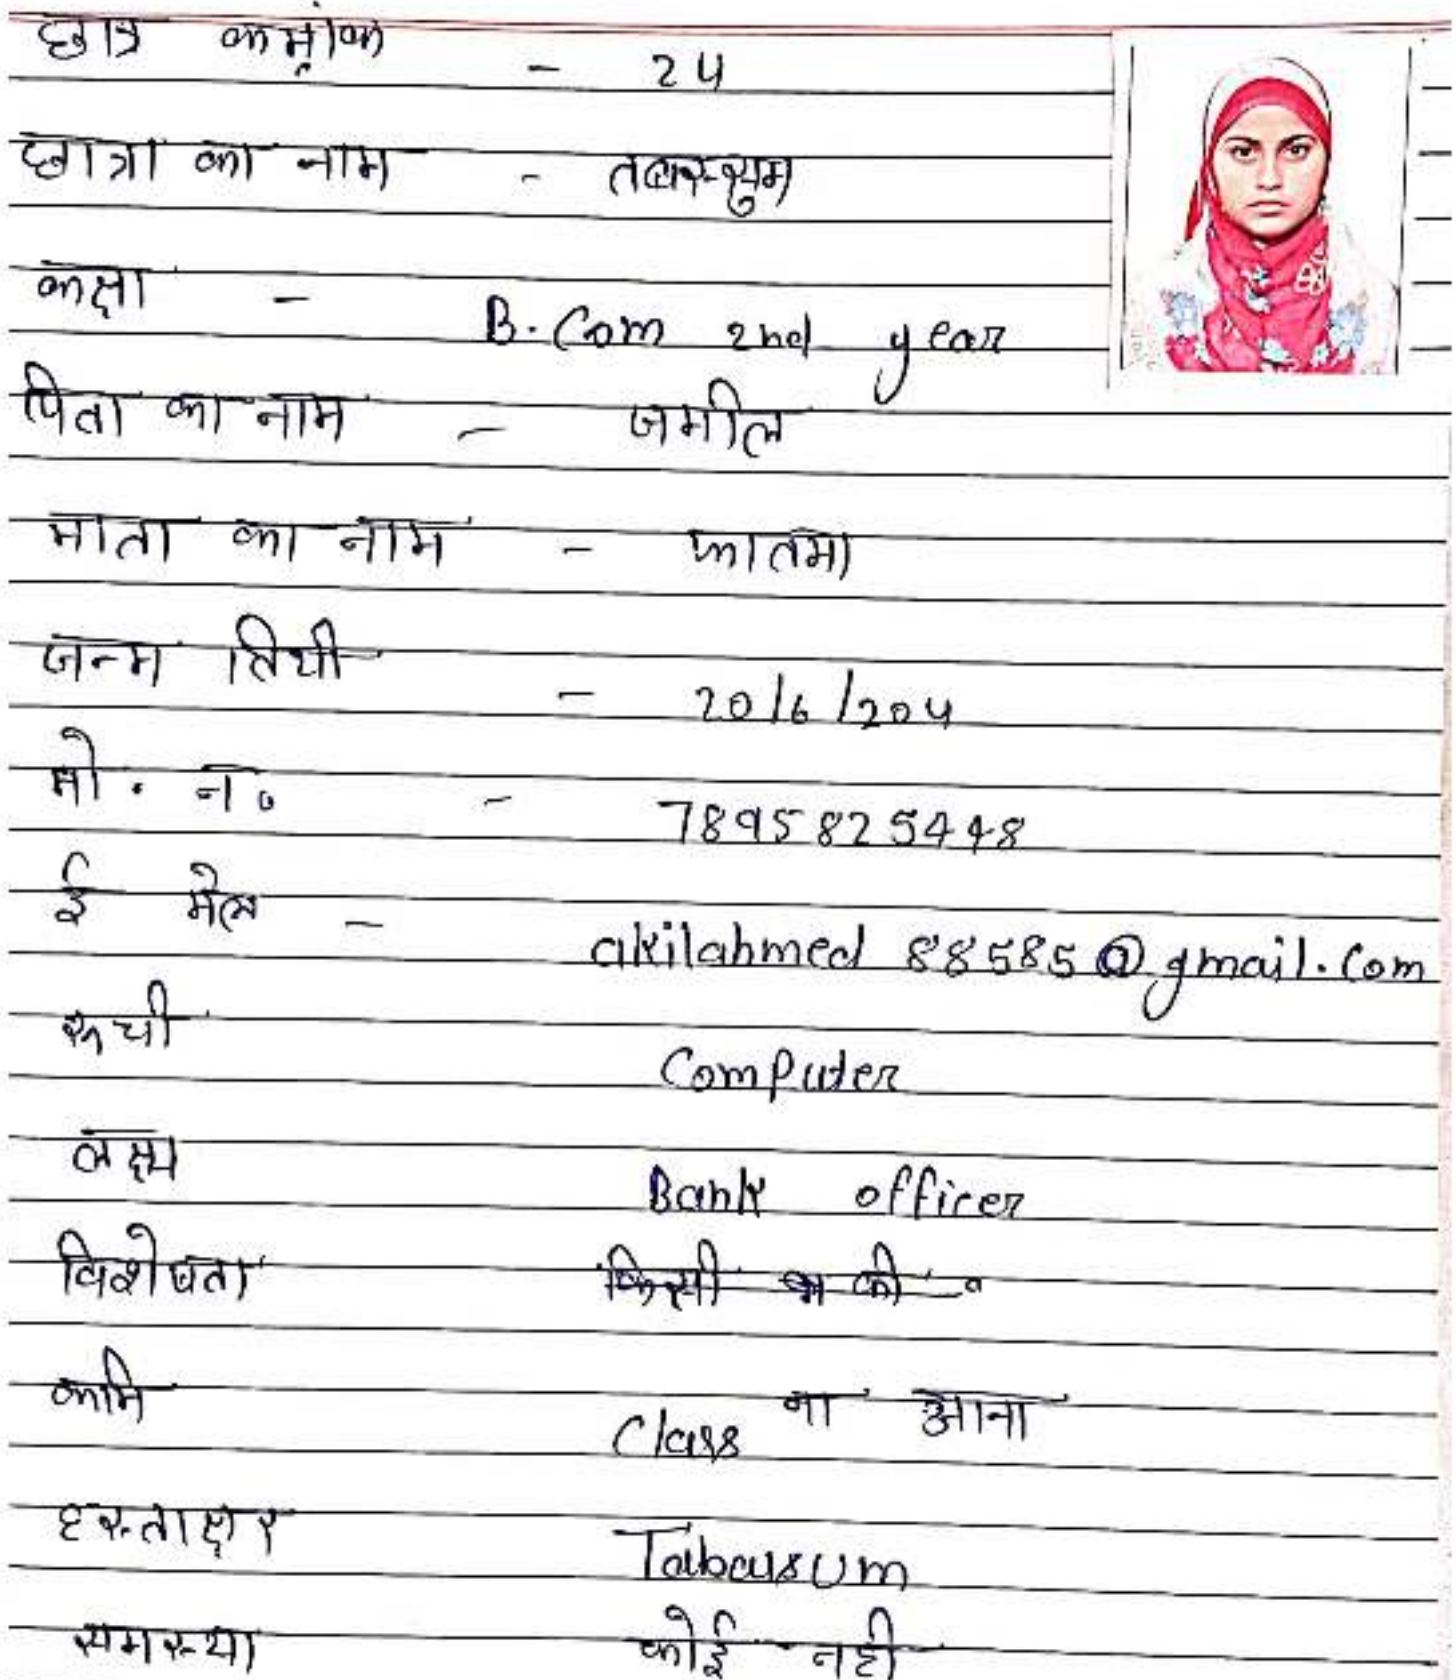 छात्र क्रमांक - 24
छात्रा का नाम - तबस्सुम
कक्षा - B.Com 2nd year
पिता का नाम - जमील
माता का नाम - फातमा
जन्म तिथी - 20/6/204
मो. न. - 7895825448
ई मेल - akilahmed 88585@gmail.com
रूची Computer
लक्ष्य Bank officer
विशेषता
कमि Class ना आना
हस्ताक्षर Tabassum
समस्या कोई नही